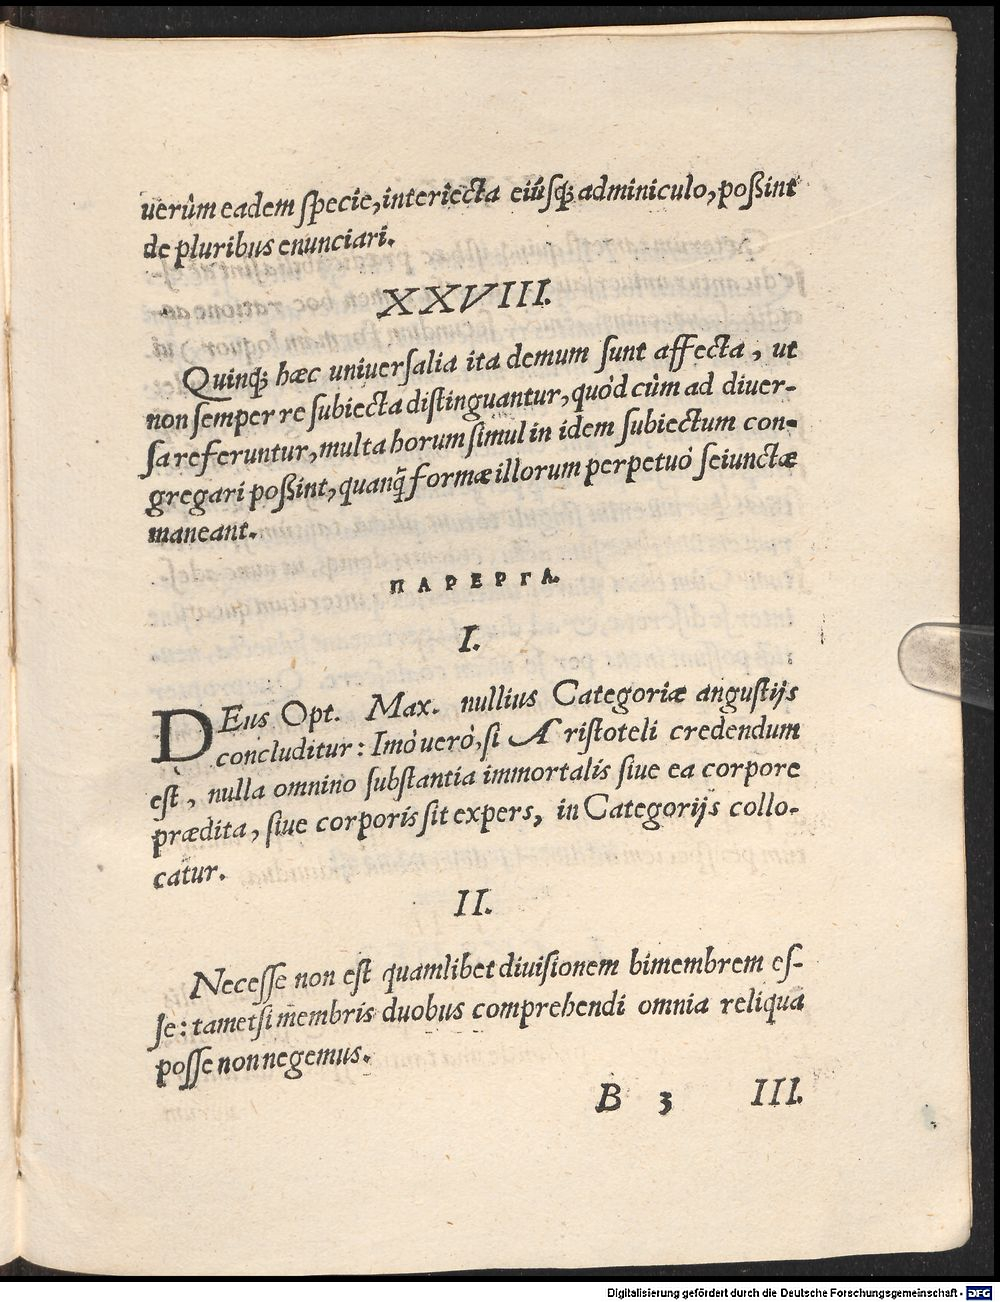 uerùm eadem ſpecie, interiecta eiúſq́; adminiculo, poßint
de pluribus enunciari.
XXVIII.
Quinq́; hæc uniuerſalia ita demum ſunt affecta, ut
non ſemper re ſubiecta diſtinguantur, quòd cùm ad diuer-
ſa referuntur, multa horum ſimul in idem ſubiectum con-
gregari poßint, quanq̃ formæ illorum perpetuò ſeiunctæ
maneant.
ΠΑΡΕΡΓΑ.
I.
DEus Opt. Max. nullius Categoriæ anguſtijs
concluditur: Imò uerò, ſi Ariſtoteli credendum
eſt, nulla omnino ſubſtantia immortalis ſiue ea corpore
prædita, ſiue corporis ſit expers, in Categorijs collo-
catur.
II.
Neceſſe non eſt quamlibet diuiſionem bimembrem eſ-
ſe: tametſi membris duobus comprehendi omnia reliqua
poſſe non negemus.
B 3 III.
Digitalisierung gefördert durch die Deutsche Forschungsgemeinschaft - DFG